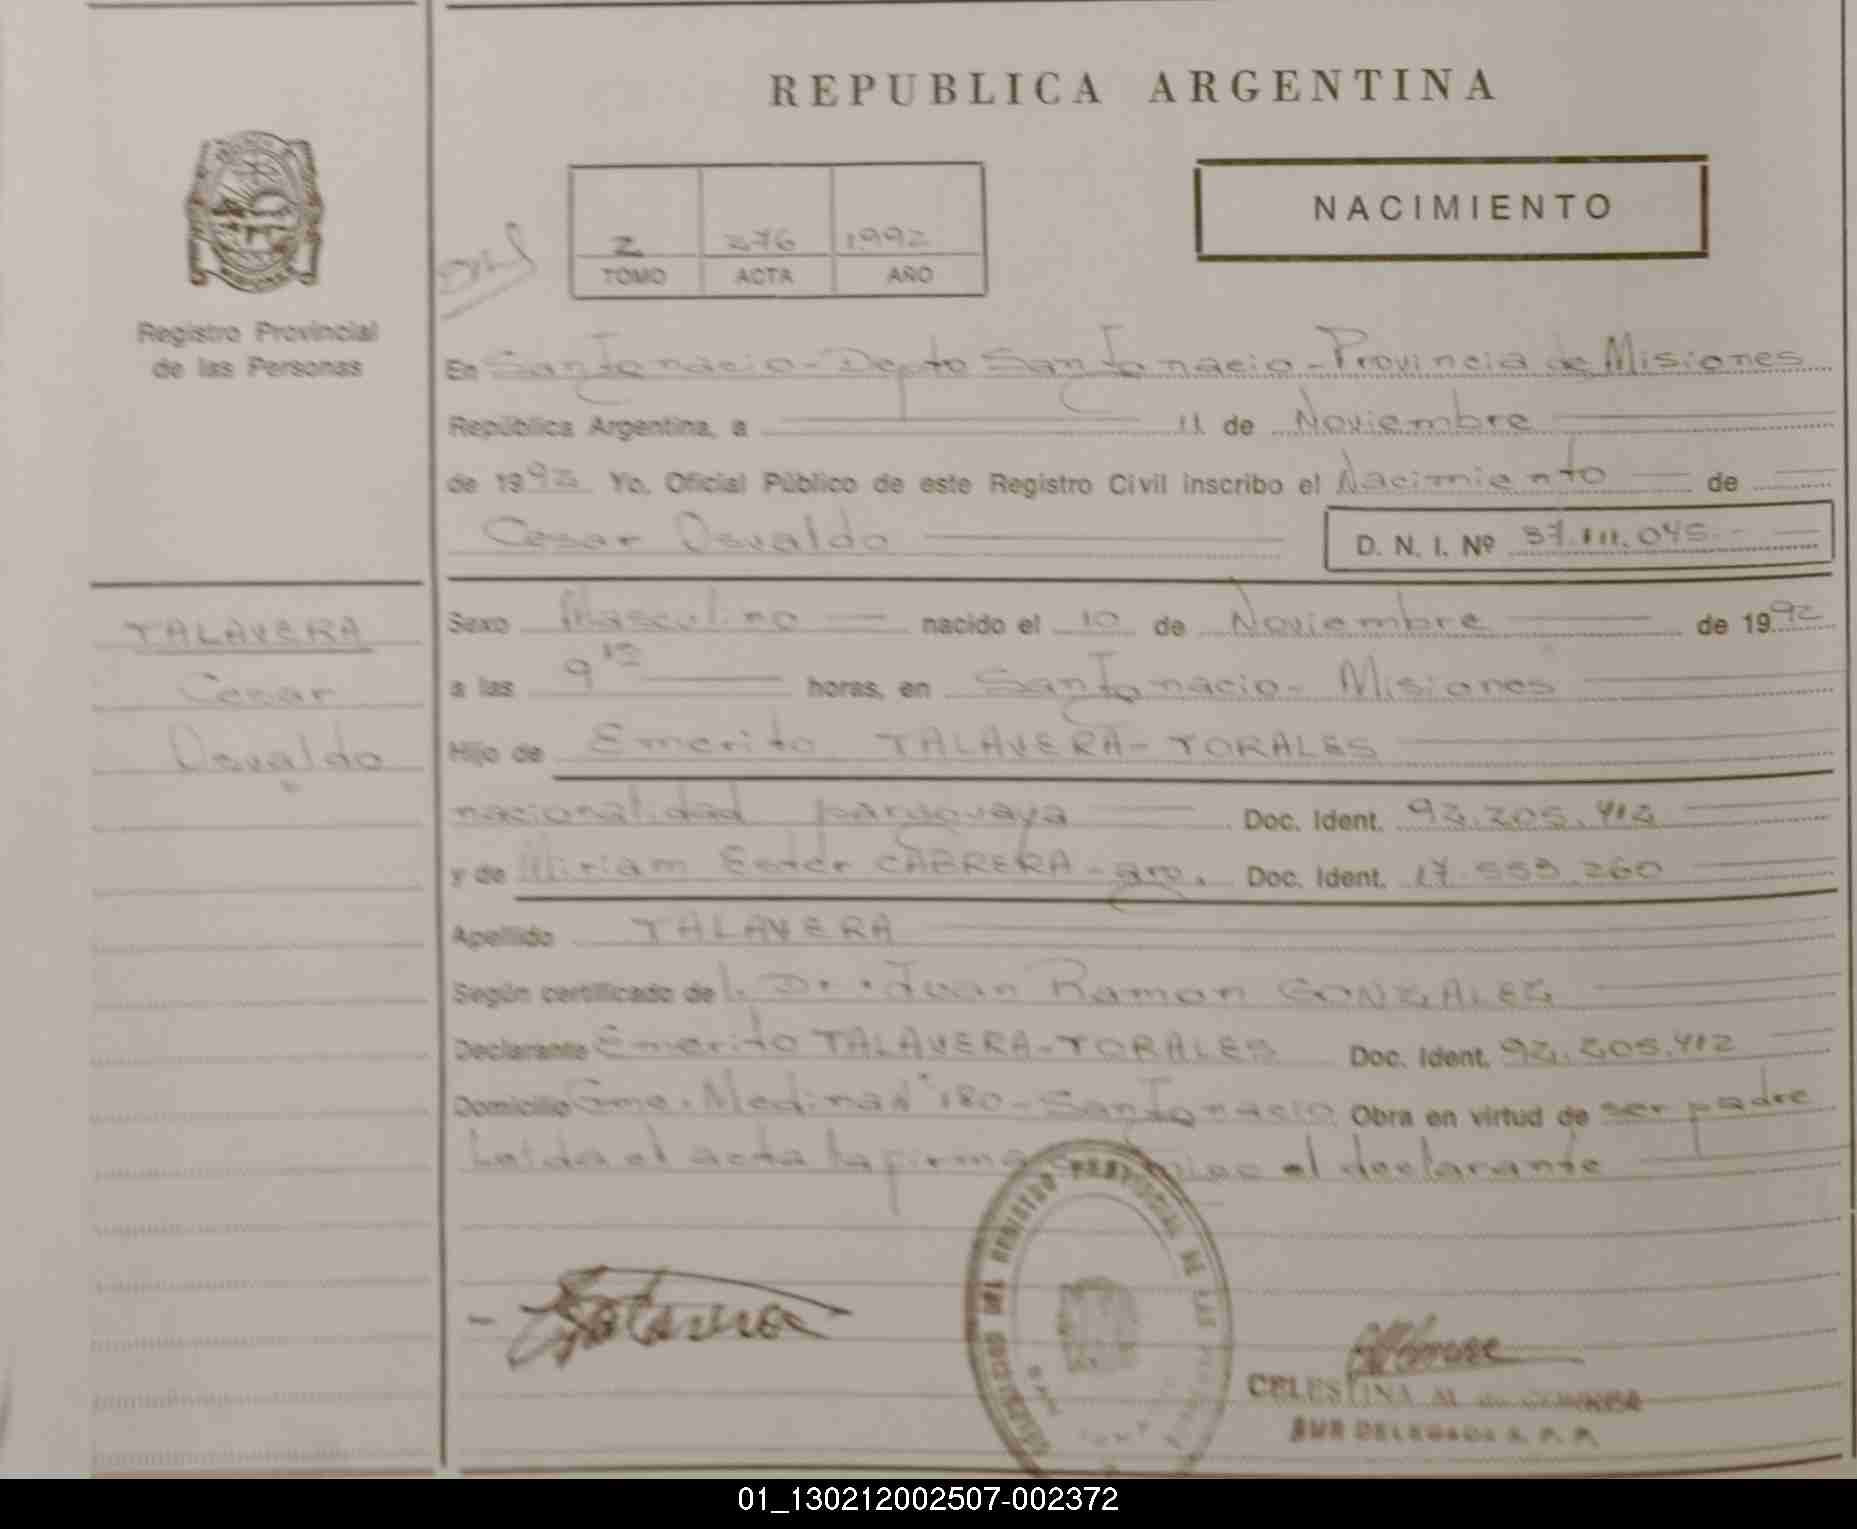 REPUBLICA ARGENTINA
NACIMIENTO
2 276 1992
TOMO ACTA AÑO
Registro Provincial
de las Personas
En San Ignacio - Depto San Ignacio - Provincia de Misiones
República Argentina, a 11 de Noviembre
de 1992 Yo, Oficial Público de este Registro Civil inscribo el Nacimiento de
Cesar Osvaldo D. N. I. Nº 37.111.045
TALAVERA
Cesar
Osvaldo
Sexo Masculino nacido el 10 de Noviembre de 1992
a las 9 horas, en San Ignacio - Misiones
Hijo de Emerito TALAVERA - TORALES
nacionalidad paraguaya Doc. Ident. 92.205.412
y de Miriam Ester CABRERA - arg. Doc. Ident. 17.553.260
Apellido TALAVERA
Según certificado del Dr. Juan Ramon GONZALEZ
Declarante Emerito TALAVERA - TORALES Doc. Ident. 92.205.412
Domicilio Gmo. Medina Nº 180 - San Ignacio Obra en virtud de ser padre
Leida el acta la firma el declarante
DEL REGISTRO PROVINCIAL DE LAS
CELESTINA
SUB DELEGADA R. P. P.
01_130212002507-002372